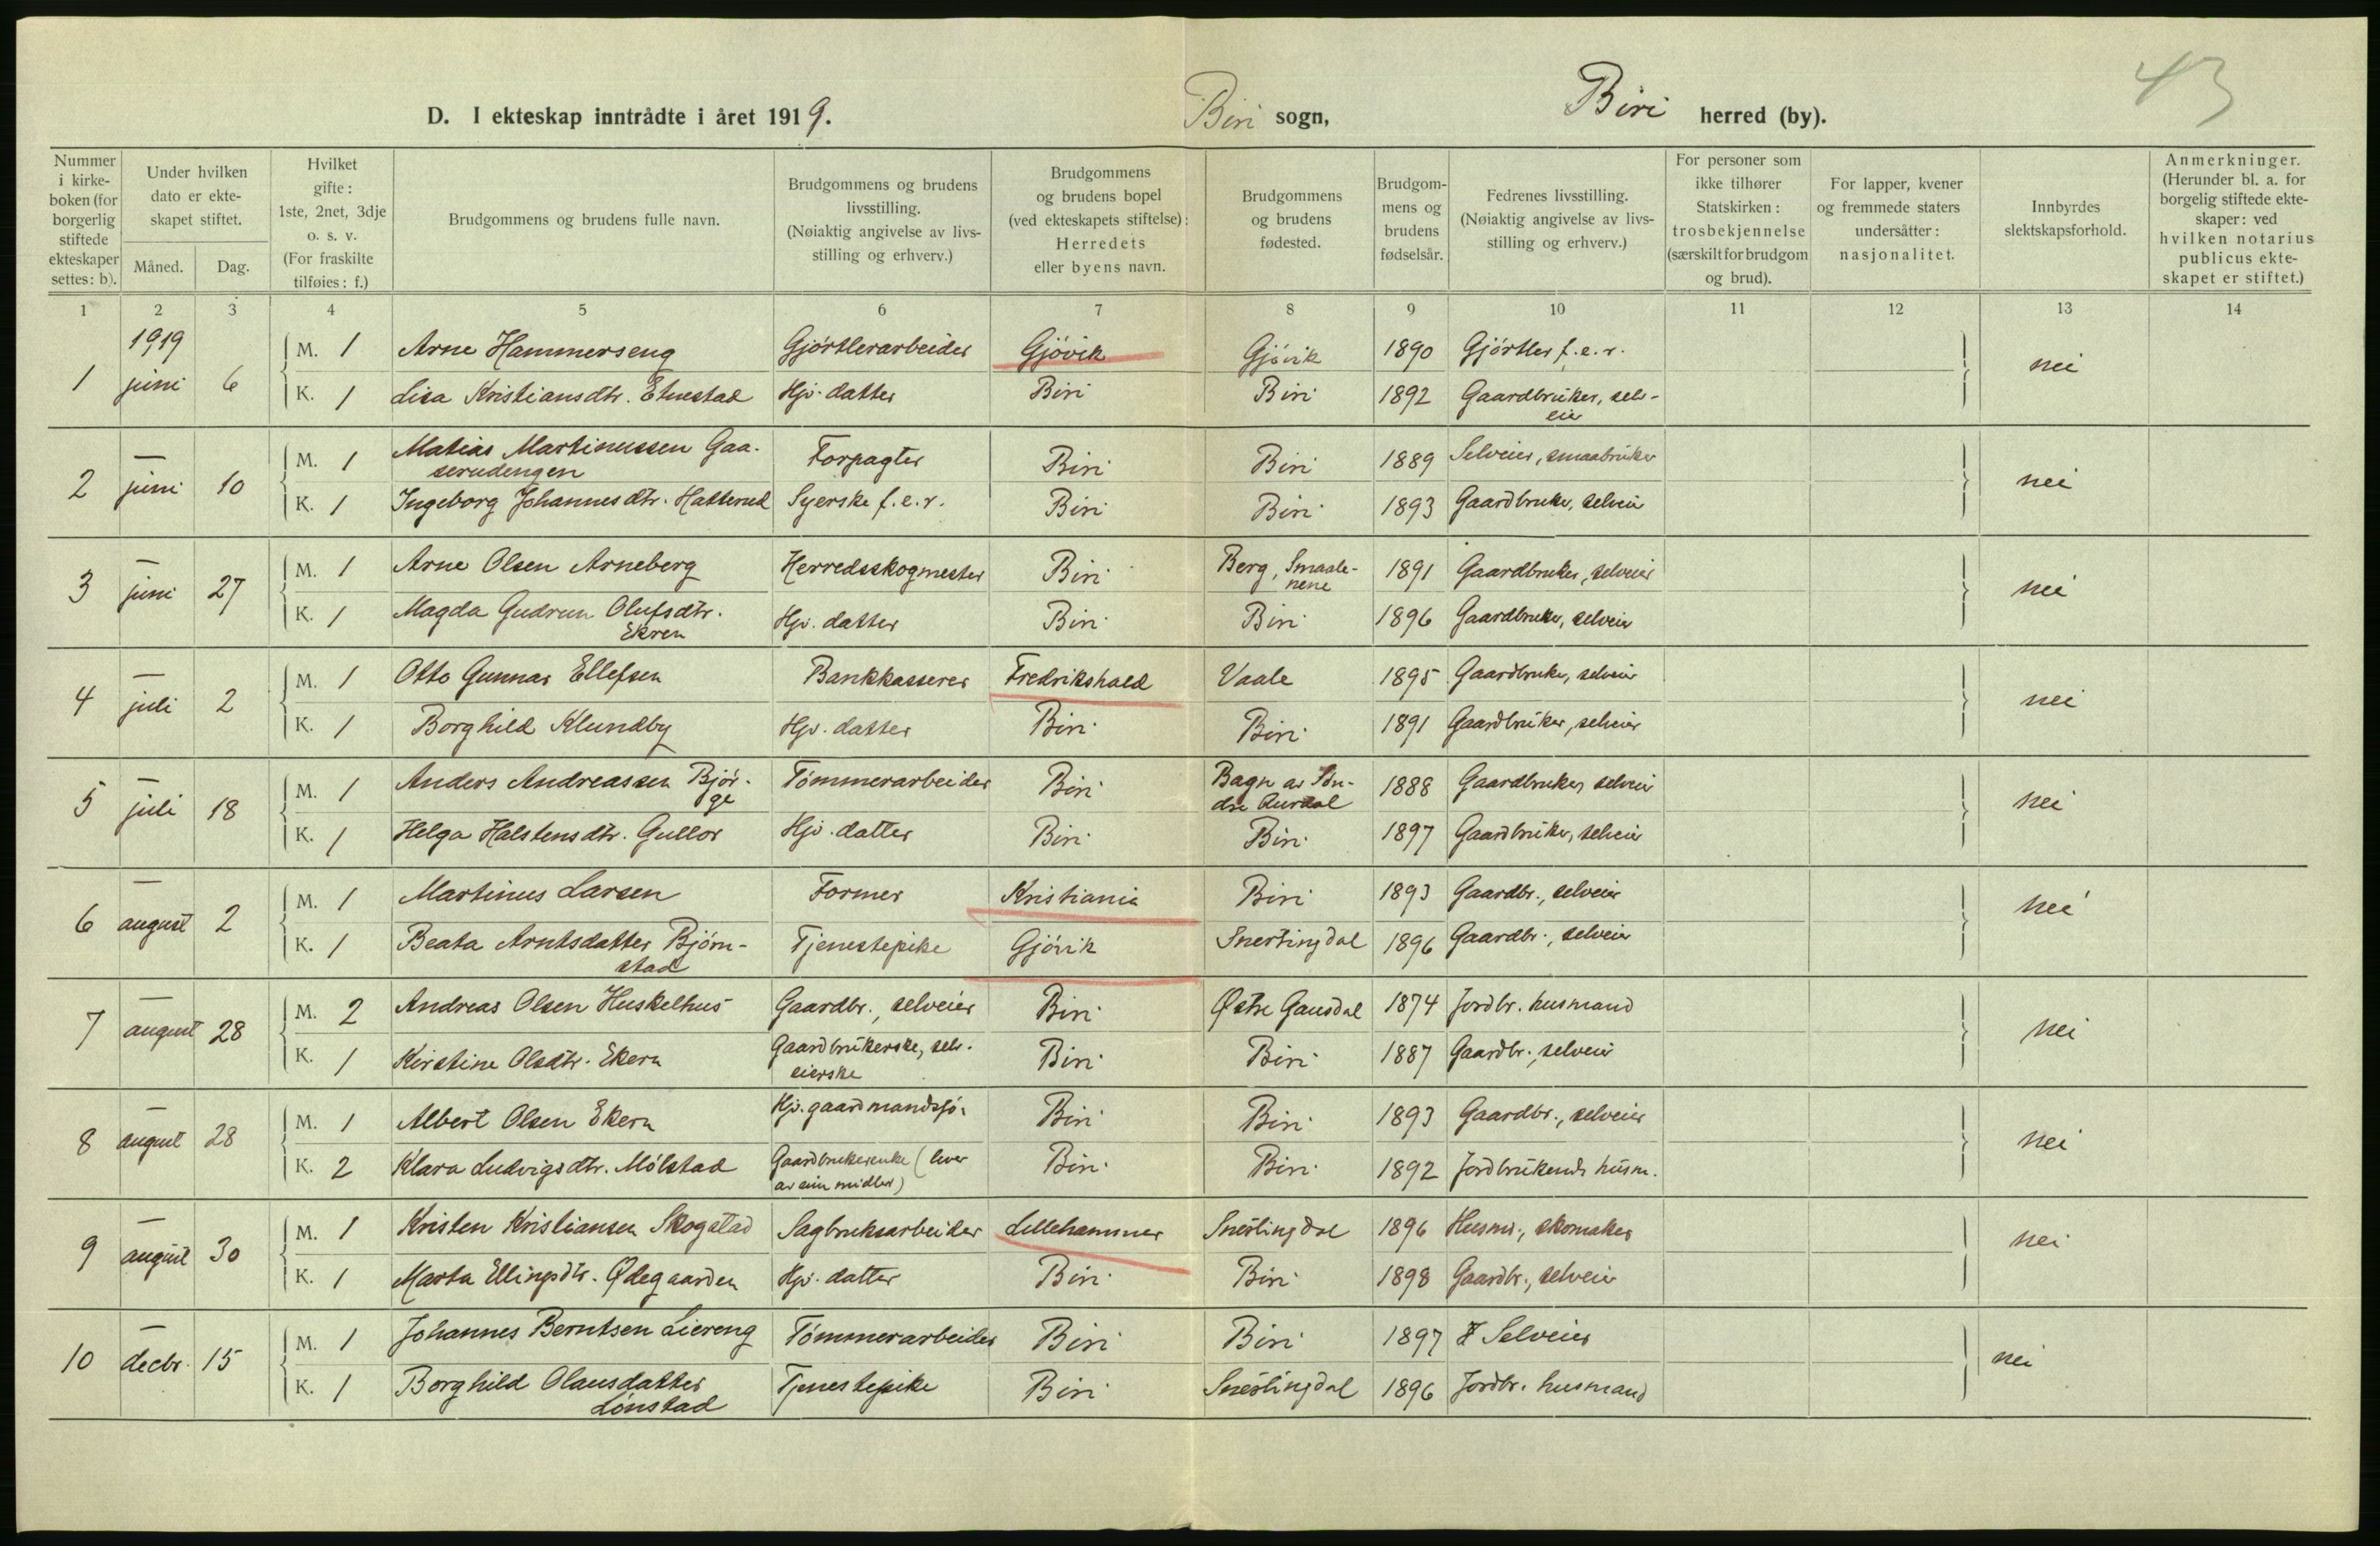 43
D. I ekteskap inntrådte i året 1919. Biri sogn, Biri herred (by).
Nummer i kirke-boken (for borgerlig stiftede ekteskaper settes: b).
Under hvilken dato er ekte-skapet stiftet.
Måned. Dag.
Hvilket gifte: 1ste, 2net, 3dje o. s. v. (For fraskilte tilføies: f.)
Brudgommens og brudens fulle navn.
Brudgommens og brudens livsstilling. (Nøiaktig angivelse av livs-stilling og erhverv.)
Brudgommens og brudens bopel (ved ekteskapets stiftelse): Herredets eller byens navn.
Brudgommens og brudens fødested.
Brudgom-mens og brudens fødselsår.
Fedrenes livsstilling. (Nøiaktig angivelse av livs-stilling og erhverv.)
For personer som ikke tilhører Statskirken: trosbekjennelse (særskilt for brudgom og brud).
For lapper, kvener og fremmede staters undersåtter: nasjonalitet.
Innbyrdes slektskapsforhold.
Anmerkninger. (Herunder bl. a. for borgelig stiftede ekte-skaper: ved hvilken notarius publicus ekte-skapet er stiftet.)
1 2 3 4 5 6 7 8 9 10 11 12 13 14
1919
M. 1 Arne Hammerseng Gjørtlerarbeider Gjövik Gjövik 1890 Gjörtler f.e.r.
1 juni 6 nei
K. 1 Lisa Kristiansdtr. Etnestad Hjv. datter Biri Biri 1892 Gaardbruker, selv-
eier
M. 1 Matias Martinussen Gaa-
serudengen Forpagter Biri Biri 1889 Selveier, smaabruker
2 — juni 10 nei
K. 1 Ingeborg Johannesdtr. Hatterud Syerske f.e.r. Biri Biri 1893 Gaardbruker, selveier
M. 1 Arne Olsen Arneberg Herredsskogmester Biri Berg, Smaale-
nene 1891 Gaardbruker, selveier
3 — juni 27 nei
K. 1 Magda Gudrun Olufsdtr.
Ekren Hjv. datter Biri Biri 1896 Gaardbruker, selveier
M. 1 Otto Gunnar Ellefsen Bankkasserer Fredrikshald Vaale 1895 Gaardbruker, selveier
4 — juli 2 nei
K. 1 Borghild Klundby Hjv. datter Biri Biri 1891 Gaardbruker, selveier
M. 1 Anders Andreassen Björ-
ge Tömmerarbeider Biri Bagn av Sön-
dre Aurdal 1888 Gaardbruker, selveier
5 — juli 18 nei
K. 1 Helga Halstensdtr. Gullor Hjv. datter Biri Biri 1897 Gaardbruker, selveier
M. 1 Martinus Larsen Former Kristiania Biri 1893 Gaardbr., selveier
6 — august 2 nei
K. 1 Beata Arntsdatter Björn-
stad Tjenestepike Gjövik Snertingdal 1896 Gaardbr., selveier
M. 2 Andreas Olsen Huskelhus Gaardbr., selveier Biri Østre Gausdal 1874 Jordbr. husmand
7 — august 28 nei
K. 1 Kirstine Olsdtr. Ekern Gaardbrukerske, selv-
eierske Biri Biri 1887 Gaardbr., selveier
M. 1 Albert Olsen Ekern Hjv. gaardmandssö. Biri Biri 1893 Gaardbr., selveier
8 — august 28 nei
K. 2 Klara Ludvigsdtr. Mölstad Gaardbrukerenke (lever
av sine midler) Biri Biri 1892 Jordbrukende husm.
M. 1 Kristen Kristiansen Skogstad Sagbruksarbeider Lillehammer Snertingdal 1896 Husm., skomaker
9 — august 30 nei
K. 1 Marta Ellingsdtr. Ødegaarden Hjv. datter Biri Biri 1898 Gaardbr., selveier
M. 1 Johannes Berntsen Liereng Tömmerarbeider Biri Biri 1897 Selveier
10 — decbr. 15 nei
K. 1 Borghild Olausdatter
Lönstad Tjenestepike Biri Snertingdal 1896 Jordbr. husmand